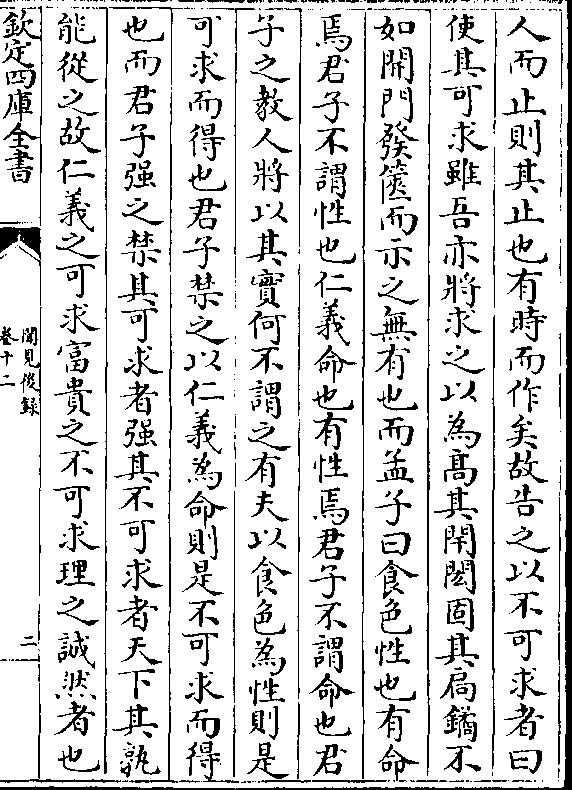 人而止則其止也有時而作矣故告之以不可求者曰
使其可求雖吾亦將求之以為髙其閈閎固其扃鐍不
如開門發篋而示之無有也而孟子曰食色性也有命
焉君子不謂性也仁義命也有性焉君子不謂命也君
子之教人將以其實何不謂之有夫以食色為性則是
可求而得也君子禁之以仁義為命則是不可求而得
也而君子强之禁其可求者强其不可求者天下其孰
能從之故仁義之可求富貴之不可求理之誠然者也
欽定四庫全書
聞見後録
卷十二
二